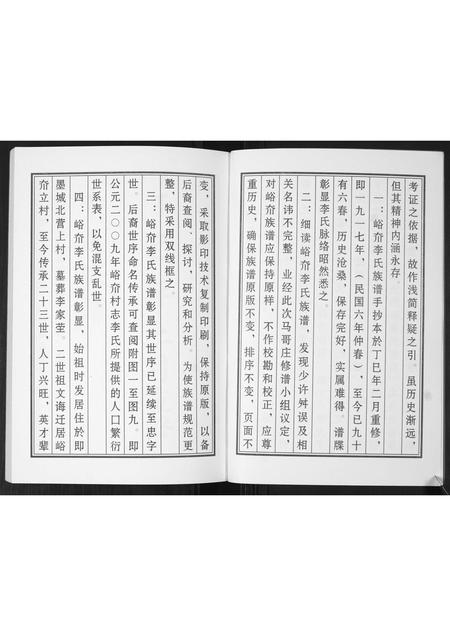 考证之依据，故作浅简释疑之引。虽历史渐远，
但其精神内涵永存。
一：峪夼李氏族谱手抄本於丁巳年二月重修，
即一九一七年，（民国六年仲春），至今已九十
有六春，历史沧桑，保存完好，实属难得。谱牒
彰显李氏脉络昭然悉之。
二：细读峪夼李氏族谱，发现少许舛误及相
关名讳不完整，业经此次马哥庄修谱小组议定，
对峪夼族谱应保持原样，不作校勘和校正，应尊
重历史，确保族谱原版不变，排序不变，页面不
变，采取影印技术复制印刷，保持原版，以备
后裔查阅、探讨，研究和分析。为使族谱规范更
整，特采用双线框之。
三：峪夼李氏族谱彰显其世序已延续至忠字
世。后裔世序命名传承可查阅附图一至图九。即
公元二〇〇九年峪夼村志李氏所提供的人口繁衍
世系表，以免混支乱世。
四：峪夼李氏族谱彰显，始祖时发居住於即
墨城北营上村，墓葬李家茔。二世祖文诲迁居峪
夼立村，至今传承二十三世，人丁兴旺，英才辈